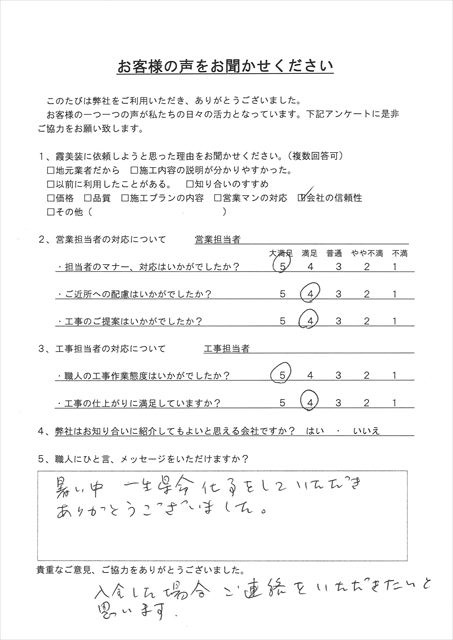 お客様の声をお聞かせください
このたびは弊社をご利用いただき、ありがとうございました。
お客様の一つ一つの声が私たちの日々の活力となっています。下記アンケートに是非
ご協力をお願い致します。
1、霞美装に依頼しようと思った理由をお聞かせください。（複数回答可）
□地元業者だから　□施工内容の説明が分かりやすかった。
□以前に利用したことがある。　□知り合いのすすめ
□価格　□品質　□施工プランの内容　□営業マンの対応　☑会社の信頼性
□その他（　　　　　　　　　　　）
2、営業担当者の対応について　営業担当者
大満足　満足　普通　やや不満　不満
・担当者のマナー、対応はいかがでしたか？　5　4　3　2　1
・ご近所への配慮はいかがでしたか？　5　4　3　2　1
・工事のご提案はいかがでしたか？　5　4　3　2　1
3、工事担当者の対応について　工事担当者
・職人の工事作業態度はいかがでしたか？　5　4　3　2　1
・工事の仕上がりに満足していますか？　5　4　3　2　1
4、弊社はお知り合いに紹介してもよいと思える会社ですか？　はい　・　いいえ
5、職人にひと言、メッセージをいただけますか？
暑い中　一生県命　仕事をしていただき
ありがとうございました。
貴重なご意見、ご協力をありがとうございました。
入金した場合　ご連絡をいただきたいと
思います.